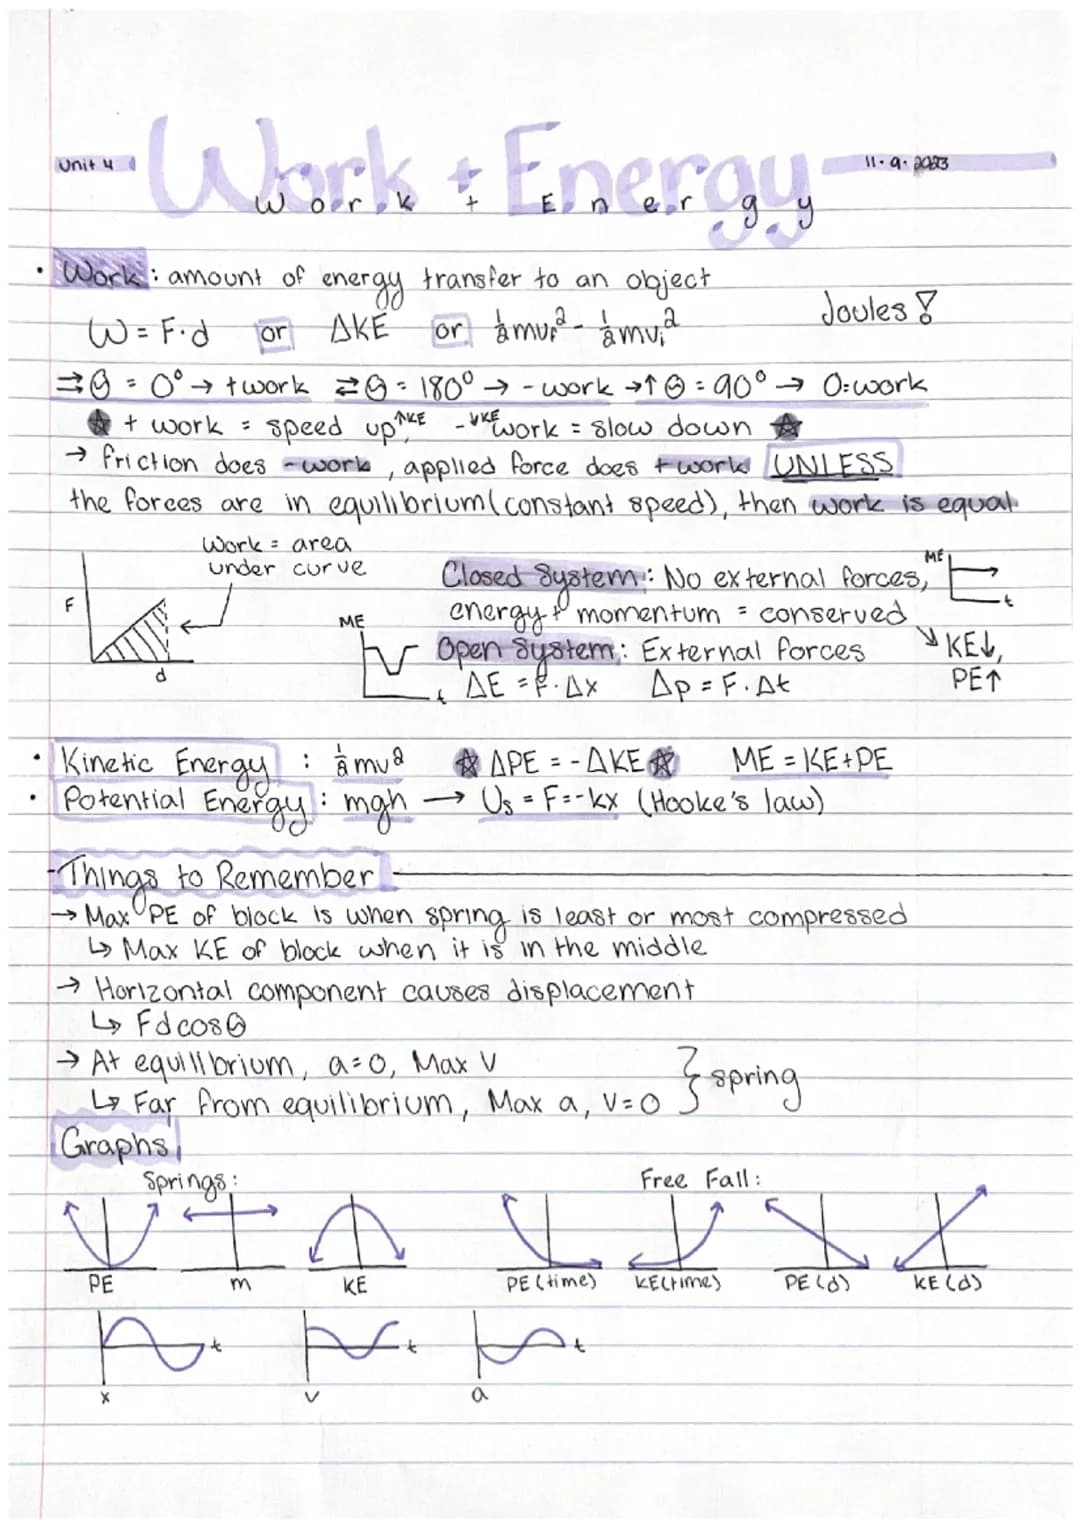 Unit 4
Work + Energy
11.9.2023
Work + Energy
• Work: amount of energy transfer to an object
Joules!
W = F·d or ΔKE or ½mv_f² - ½mv_i²
⇉ θ = 0° → + work ⇄ θ = 180° → - work →↑ θ = 90° → 0 = work
☆ + work = speed up ↑KE - ↓KE work = slow down ☆
→ friction does - work, applied force does + work UNLESS
the forces are in equilibrium (constant speed), then work is equal
Work = area
under curve
F
d
Closed System: No external forces,
energy + momentum = conserved
ME
t
ME
t
Open System: External forces
ΔE = F·Δx Δp = F·Δt
↘ KE↓,
PE↑
• Kinetic Energy : ½mv² ☆ ΔPE = -ΔKE ☆ ME = KE+PE
• Potential Energy: mgh → Us = F=-kx (Hooke's law)
-Things to Remember
→ Max PE of block is when spring is least or most compressed
↳ Max KE of block when it is in the middle
→ Horizontal component causes displacement
↳ Fdcosθ
→ At equilibrium, a=0, Max V
↳ Far from equilibrium, Max a, V=0
} spring
Graphs
Springs:
Free Fall:
PE m KE PE (time) KE(time) PE (d) KE (d)
t t t
x v a